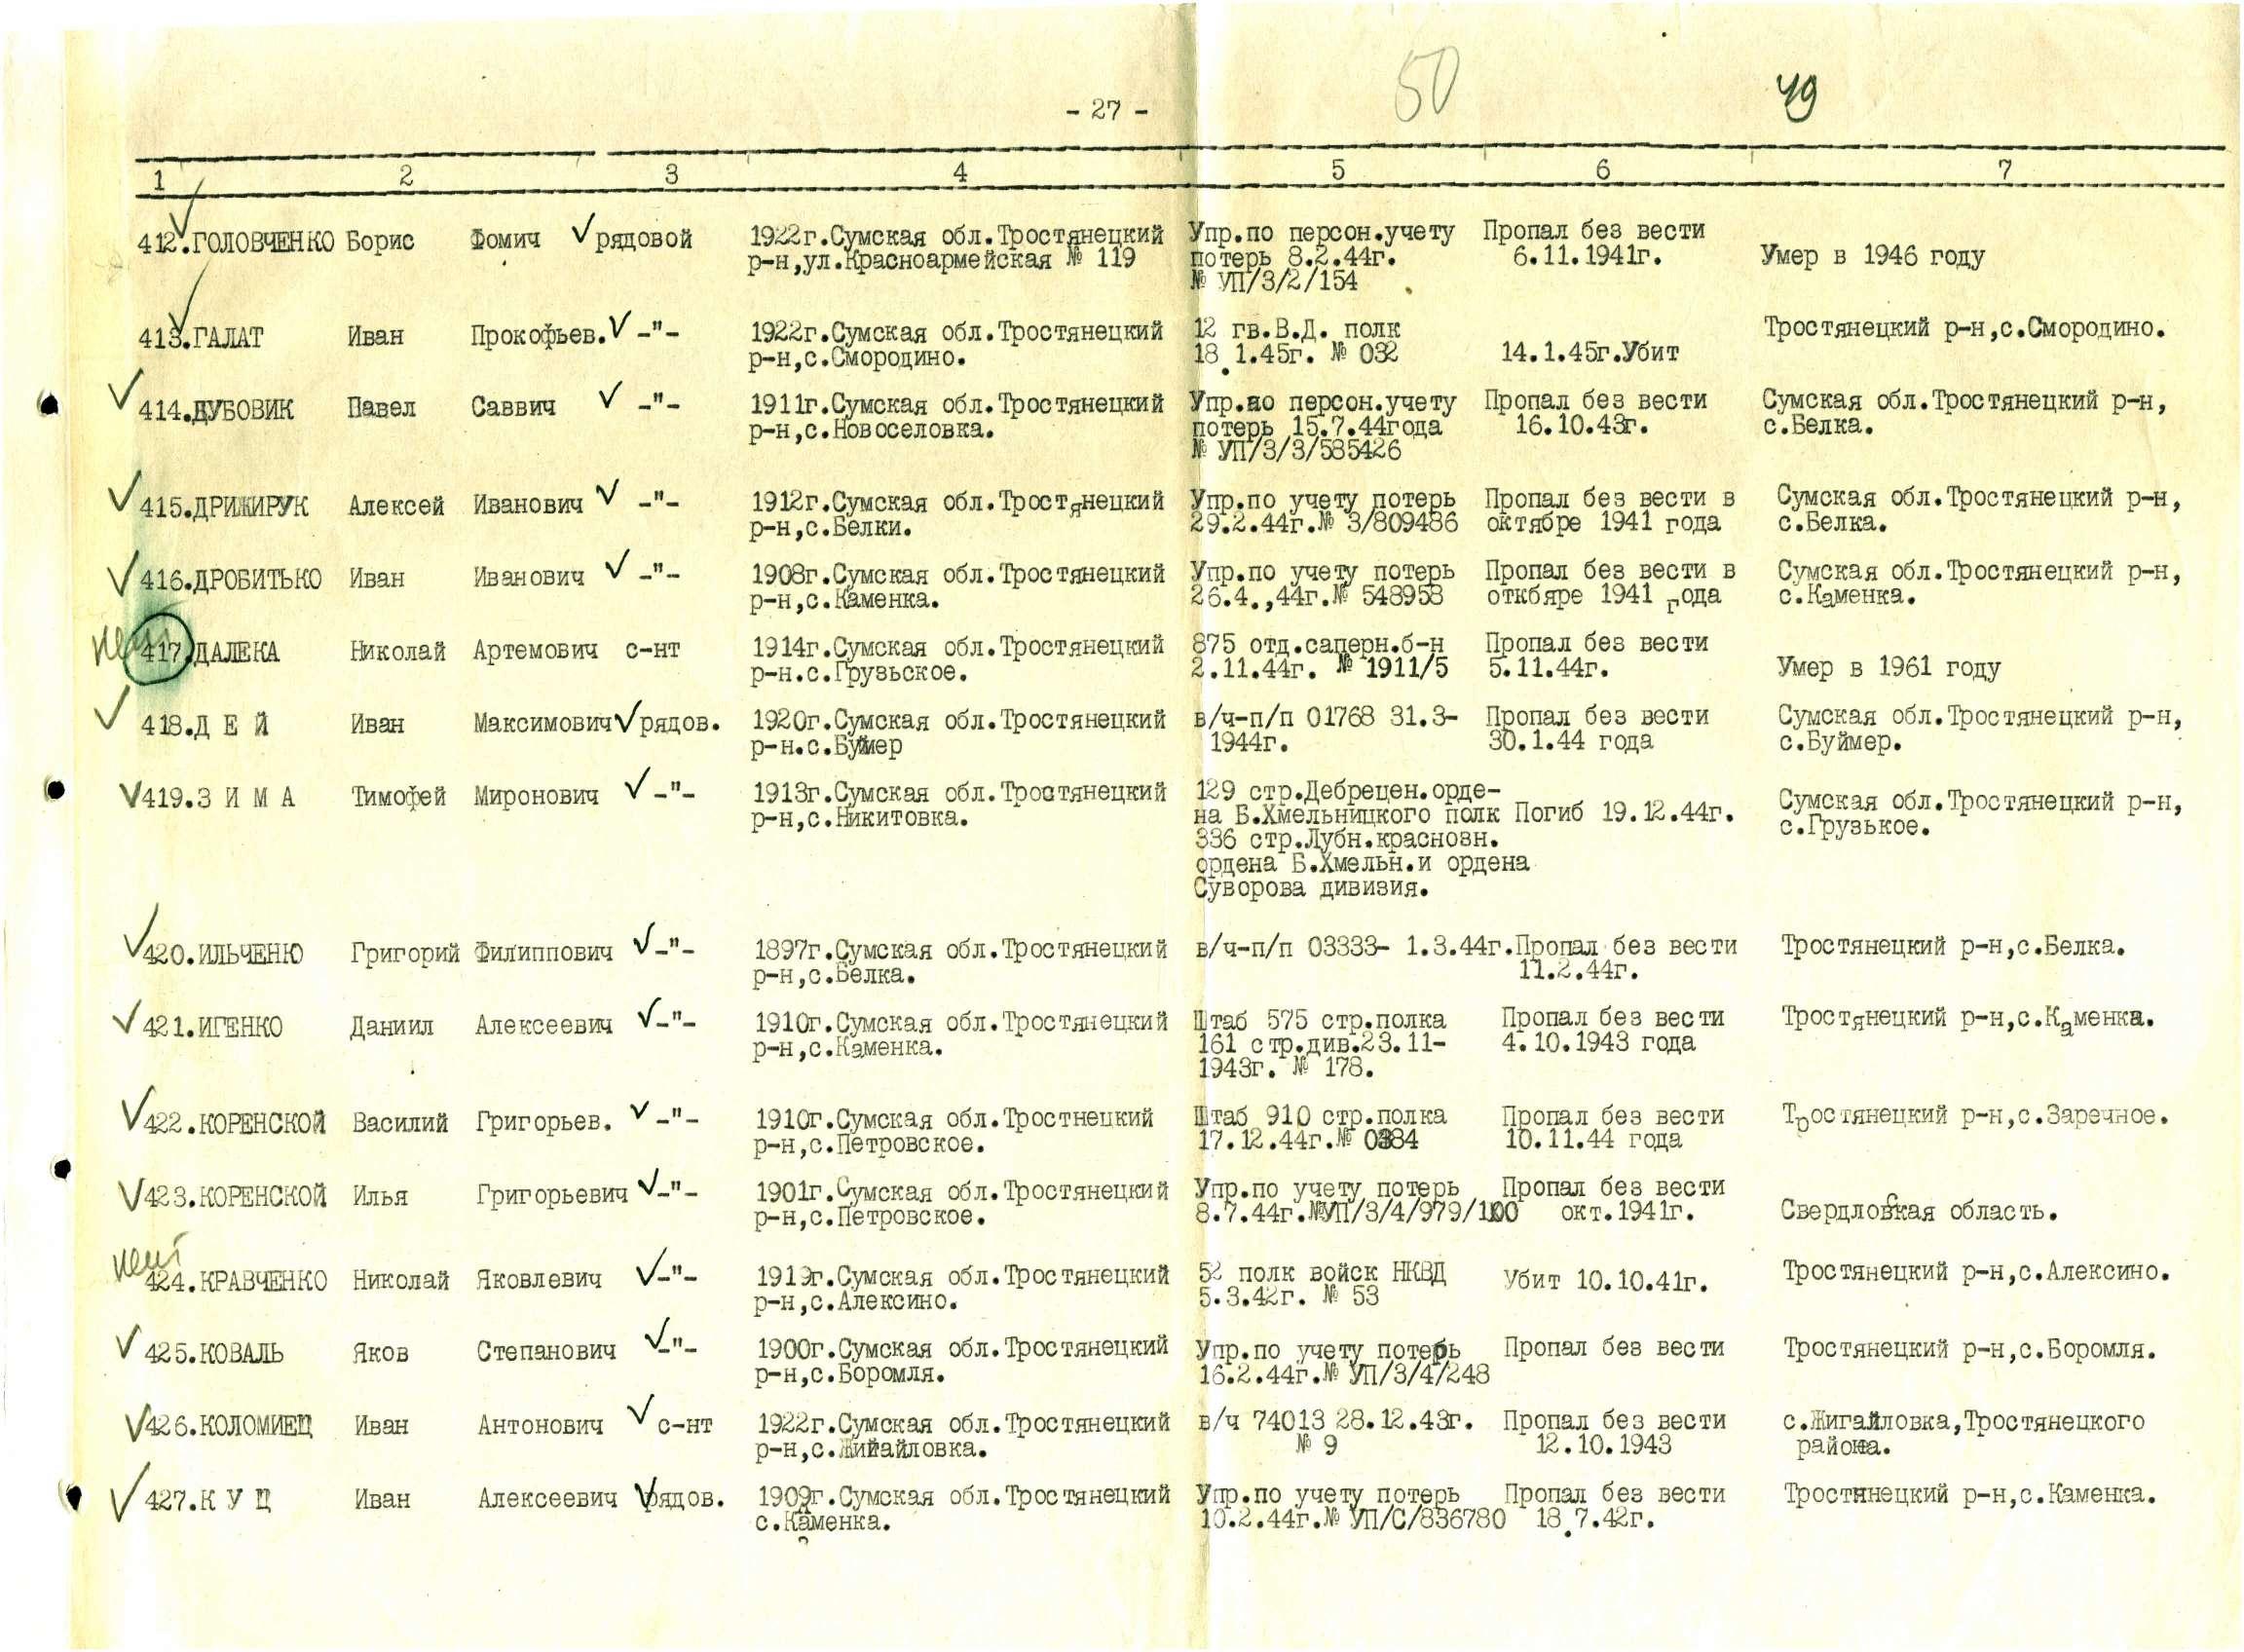 50
49
- 27 -
1 2 3 4 5 6 7
412.ГОЛОВЧЕНКО Борис Фомич рядовой 1922г.Сумская обл.Тростянецкий Упр.по персон.учету Пропал без вести
р-н,ул.Красноармейская № 119 потерь 8.2.44г. 6.11.1941г. Умер в 1946 году
№ УП/3/2/154
413.ГАЛАТ Иван Прокофьев. -"- 1922г.Сумская обл.Тростянецкий 12 гв.В.Д. полк Тростянецкий р-н,с.Смородино.
р-н,с.Смородино. 18.1.45г. № 032 14.1.45г.Убит
414.ДУБОВИК Павел Саввич -"- 1911г.Сумская обл.Тростянецкий Упр.ао персон.учету Пропал без вести Сумская обл.Тростянецкий р-н,
р-н,с.Новоселовка. потерь 15.7.44года 16.10.43г. с.Белка.
№ УП/3/3/585426
415.ДРИЖИРУК Алексей Иванович -"- 1912г.Сумская обл.Тростянецкий Упр.по учету потерь Пропал без вести в Сумская обл.Тростянецкий р-н,
р-н,с.Белки. 29.2.44г.№ 3/809486 октябре 1941 года с.Белка.
416.ДРОБИТЬКО Иван Иванович -"- 1908г.Сумская обл.Тростянецкий Упр.по учету потерь Пропал без вести в Сумская обл.Тростянецкий р-н,
р-н,с.Каменка. 26.4.,44г.№ 548958 откбяре 1941 года с.Каменка.
нет 417.ДАЛЕКА Николай Артемович с-нт 1914г.Сумская обл.Тростянецкий 875 отд.саперн.б-н Пропал без вести
р-н.с.Грузьское. 2.11.44г. № 1911/5 5.11.44г. Умер в 1961 году
418.Д Е Й Иван Максимович рядов. 1920г.Сумская обл.Тростянецкий в/ч-п/п 01768 31.3- Пропал без вести Сумская обл.Тростянецкий р-н,
р-н.с.Буймер 1944г. 30.1.44 года с.Буймер.
419.З И М А Тимофей Миронович -"- 1913г.Сумская обл.Тростянецкий 129 стр.Дебрецен.орде-
р-н,с.Никитовка. на Б.Хмельницкого полк Погиб 19.12.44г. Сумская обл.Тростянецкий р-н,
336 стр.Лубн.краснозн. с.Грузькое.
ордена Б.Хмельн.и ордена
Суворова дивизия.
420.ИЛЬЧЕНКО Григорий Филиппович -"- 1897г.Сумская обл.Тростянецкий в/ч-п/п 03333- 1.3.44г.Пропал без вести Тростянецкий р-н,с.Белка.
р-н,с.Белка. 11.2.44г.
421.ИГЕНКО Даниил Алексеевич -"- 1910г.Сумская обл.Тростянецкий Штаб 575 стр.полка Пропал без вести Тростянецкий р-н,с.Каменка.
р-н,с.Каменка. 161 стр.див.23.11- 4.10.1943 года
1943г. № 178.
422.КОРЕНСКОЙ Василий Григорьев. -"- 1910г.Сумская обл.Тростнецкий Штаб 910 стр.полка Пропал без вести Тростянецкий р-н,с.Заречное.
р-н,с.Петровское. 17.12.44г.№ 0384 10.11.44 года
423.КОРЕНСКОЙ Илья Григорьевич -"- 1901г.Сумская обл.Тростянецкий Упр.по учету потерь Пропал без вести
р-н,с.Петровское. 8.7.44г.№УП/3/4/979/100 окт.1941г. Свердловская область.
нет 424.КРАВЧЕНКО Николай Яковлевич -"- 1919г.Сумская обл.Тростянецкий 52 полк войск НКВД Убит 10.10.41г. Тростянецкий р-н,с.Алексино.
р-н,с.Алексино. 5.3.42г. № 53
425.КОВАЛЬ Яков Степанович -"- 1900г.Сумская обл.Тростянецкий Упр.по учету потерь Пропал без вести Тростянецкий р-н,с.Боромля.
р-н,с.Боромля. 16.2.44г.№ УП/3/4/248
426.КОЛОМИЕЦ Иван Антонович с-нт 1922г.Сумская обл.Тростянецкий в/ч 74013 28.12.43г. Пропал без вести с.Жигайловка,Тростянецкого
р-н, № 9 12.10.1943 района.
427.К У Ц Иван Алексеевич рядов. 1909г.Сумская обл.Тростянецкий Упр.по учету потерь Пропал без вести Тростянецкий р-н,с.Каменка.
с.Каменка. 10.2.44г.№ УП/С/836780 18.7.42г.